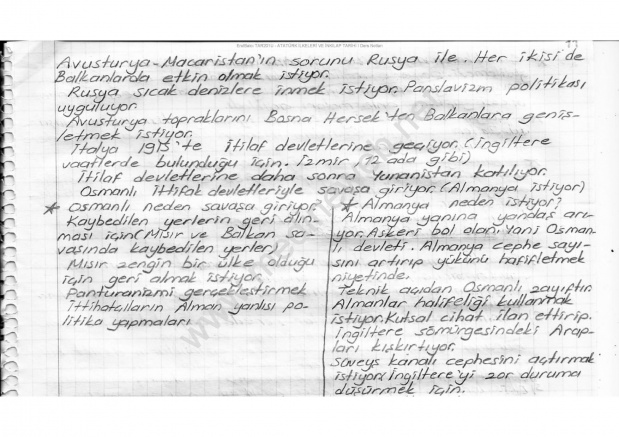 Avusturya-Macaristan'ın sorunu Rusya ile. Her ikisi de
Balkanlarda etkin olmak istiyor.
Rusya sıcak denizlere inmek istiyor. Panslavizm politikası
uyguluyor.
Avusturya topraklarını Bosna Hersek'ten Balkanlara geniş-
letmek istiyor.
İtalya 1915'te itilaf devletlerine geçiyor. (İngiltere
vaatlerde bulunduğu için. İzmir (12 ada gibi)
İtilaf devletlerine daha sonra Yunanistan katılıyor.
Osmanlı İttifak devletleriyle savaşa giriyor. (Almanya istiyor)
* Osmanlı neden savaşa giriyor?
Kaybedilen yerlerin geri alın-
ması için (Mısır ve Balkan sa-
vaşında kaybedilen yerler)
Mısır zengin bir ülke olduğu
için geri almak istiyor.
Panturanizmi gerçekleştirmek
İttihatçıların Alman yanlısı po-
litika yapmaları
* Almanya neden istiyor?
Almanya yanına yandaş arı-
yor. Askeri bol olan. Yani Osman-
lı devleti. Almanya cephe sayı-
sını artırıp yükünü hafifletmek
niyetinde.
Teknik açıdan Osmanlı zayıftır.
Almanlar halifeliği kullanmak
istiyor. Kutsal cihat ilan ettirip.
İngiltere sömürgesindeki Arap-
ları kışkırtıyor.
Süveyş kanalı cephesini açtırmak
istiyor (İngiltere'yi zor duruma
düşürmek için.